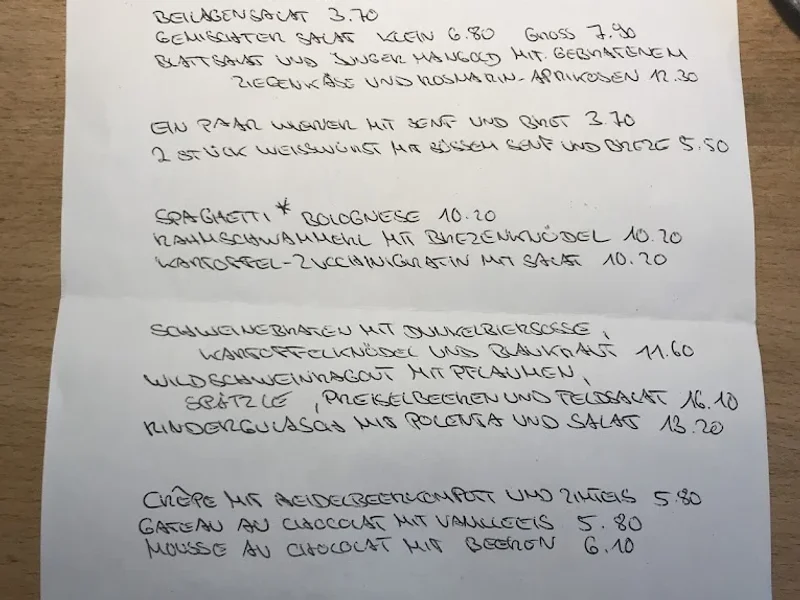 BEILAGENSALAT 3.70
GEMISCHTER SALAT KLEIN 6.80 GROSS 7.90
BLATTSALAT UND JUNGER MANGOLD MIT GEBRATENEM
ZIEGENKÄSE UND ROSMARIN-APRIKOSEN 12.30
EIN PAAR WIENER MIT SENF UND BROT 3.70
2 STÜCK WEISSWÜRST MIT SÜSSEM SENF UND BREZE 5.50
SPAGHETTI * BOLOGNESE 10.20
RAHMSCHWAMMERL MIT BREZENKNÖDEL 10.20
KARTOFFEL-ZUCCHINIGRATIN MIT SALAT 10.20
SCHWEINEBRATEN MIT DUNKELBIERSOSSE,
KARTOFFELKNÖDEL UND BLAUKRAUT 11.60
WILDSCHWEINRAGOUT MIT PFLAUMEN,
SPÄTZLE, PREISELBEEREN UND FELDSALAT 16.10
RINDERGULASCH MIT POLENTA UND SALAT 13.20
CRÊPE MIT HEIDELBEERKOMPOTT UND ZIMTEIS 5.80
GATEAU AU CHOCOLAT MIT VANILLEEIS 5.80
MOUSSE AU CHOCOLAT MIT BEEREN 6.10